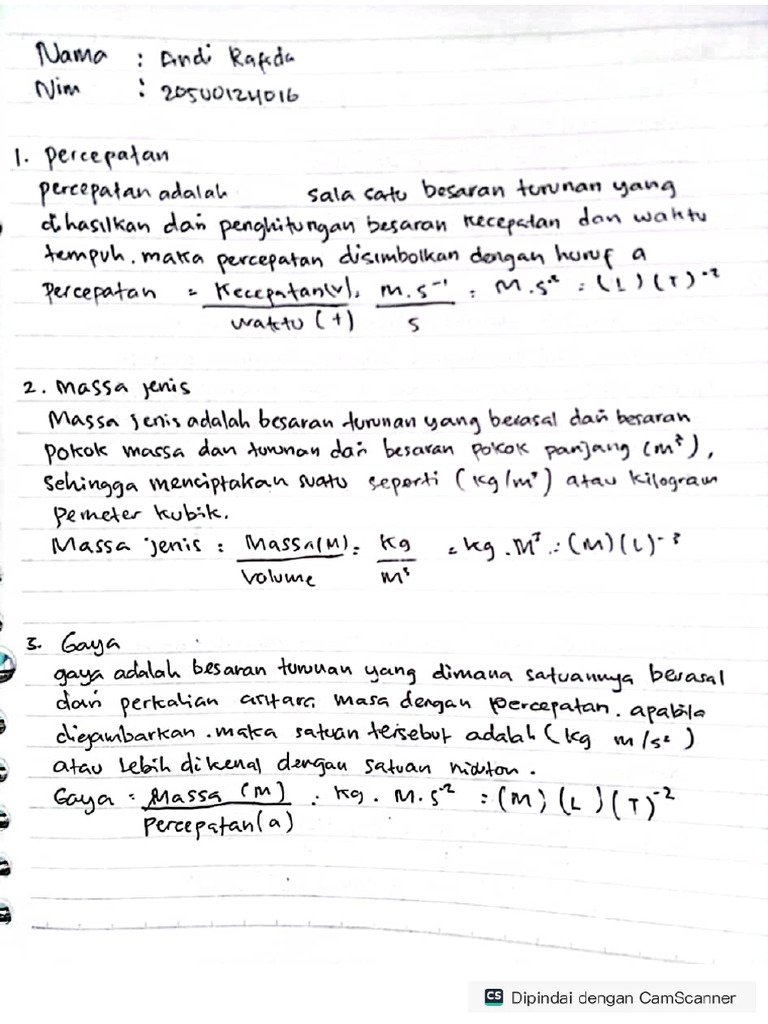 Nama : Andi Rafida
Nim : 20500124016
1. percepatan
percepatan adalah sala satu besaran turunan yang
dihasilkan dari penghitungan besaran kecepatan dan waktu
tempuh. maka percepatan disimbolkan dengan huruf a
percepatan = Kecepatan(v) : m.s⁻¹ : M.s⁻² : (L)(T)⁻²
waktu (t) s
2. Massa jenis
Massa jenis adalah besaran turunan yang berasal dari besaran
pokok massa dan turunan dari besaran pokok panjang (m³),
sehingga menciptakan suatu seperti (kg/m³) atau kilogram
permeter kubik.
Massa jenis : Massa(M) : Kg = kg.M³ : (M)(L)⁻³
Volume m³
3. Gaya
gaya adalah besaran turunan yang dimana satuannya berasal
dari perkalian antara masa dengan percepatan. apabila
digambarkan. maka satuan tersebut adalah (kg m/s²)
atau lebih dikenal dengan satuan niuton.
Gaya : Massa (M) : kg. M.s⁻² : (M)(L)(T)⁻²
Percepatan(a)
CS Dipindai dengan CamScanner